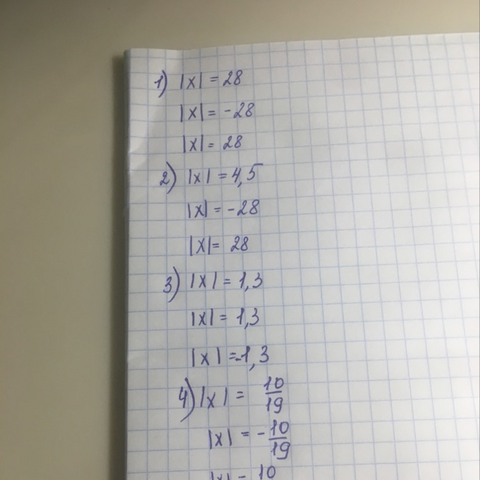 1) |x| = 28
|x| = -28
|x| = 28
2) |x| = 4,5
|x| = -28
|x| = 28
3) |x| = 1,3
|x| = 1,3
|x| = -1,3
4) |x| = 10/19
|x| = -10/19
|x| = 10